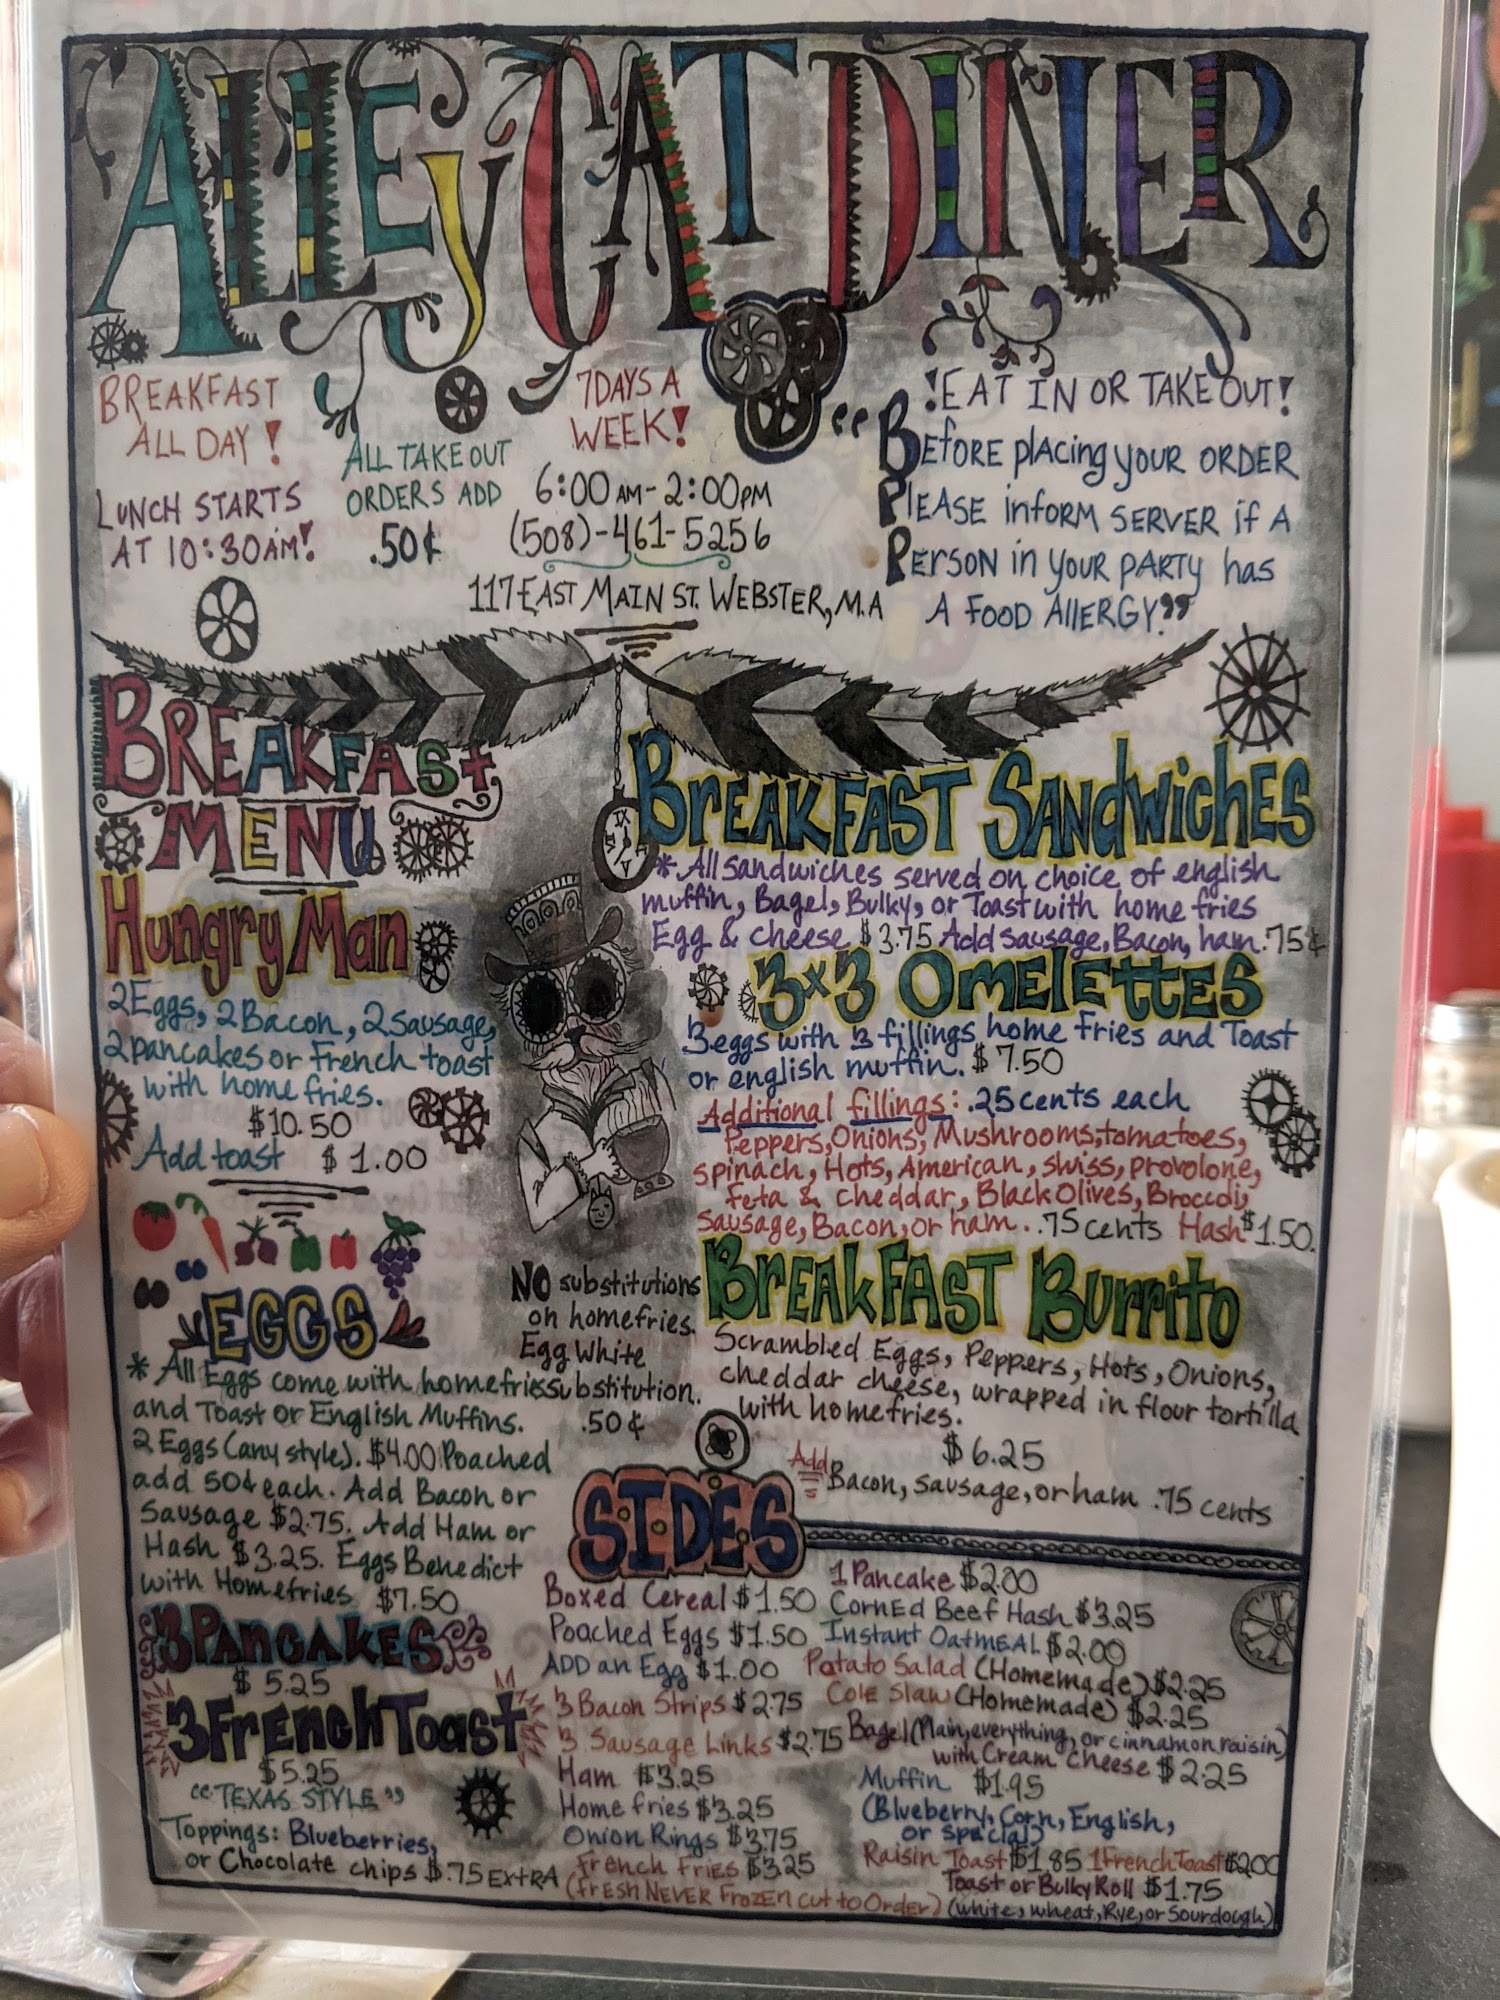 ALLEY CAT DINER
BREAKFAST
ALL DAY!
LUNCH STARTS
AT 10:30AM!
ALL TAKE OUT
ORDERS ADD
.50¢
7 DAYS A
WEEK!
6:00 AM - 2:00 PM
(508)-461-5256
117 EAST MAIN ST. WEBSTER, MA
!EAT IN OR TAKE OUT!
"BEFORE placing your ORDER
PLEASE inform SERVER if A
PERSON in your PARTY has
A FOOD AllERGY."
BREAKFAST
MENU
Hungry Man
2 Eggs, 2 Bacon, 2 sausage,
2 pancakes or french toast
with home fries.
$10.50
Add toast $1.00
EGGS
* All Eggs come with homefries
and Toast or English Muffins.
2 Eggs (any style). $4.00 Poached
add 50¢ each. Add Bacon or
Sausage $2.75. Add Ham or
Hash $3.25. Eggs Benedict
with Homefries $7.50
3 PANCAKES
$5.25
3 French Toast
$5.25
"TEXAS STYLE"
Toppings: Blueberries,
or Chocolate chips $.75 EXTRA
NO substitutions
on homefries.
Egg White
substitution.
.50¢
BREAKFAST SANdwichES
* All sandwiches served on choice of english
muffin, Bagel, Bulky, or Toast with home fries
Egg & cheese $3.75 Add sausage, Bacon, ham .75¢
3x3 OMElettES
3 eggs with 3 fillings home fries and Toast
or english muffin. $7.50
Additional fillings: .25 cents each
Peppers, Onions, Mushrooms, tomatoes,
spinach, Hots, American, swiss, provolone,
feta & cheddar, Black Olives, Broccoli,
Sausage, Bacon, or ham . .75 cents Hash $1.50.
BREAKFAST Burrito
Scrambled Eggs, Peppers, Hots, Onions,
cheddar cheese, wrapped in flour tortilla
with homefries.
$6.25
Add Bacon, sausage, or ham .75 cents
S.I.D.E.S
Boxed Cereal $1.50
Poached Eggs $1.50
ADD an Egg $1.00
3 Bacon Strips $2.75
3 Sausage Links $2.75
Ham $3.25
Home fries $3.25
Onion Rings $3.75
French Fries $3.25
(FrESH NEVER FrOZEN cut to Order)
1 Pancake $2.00
CornEd Beef Hash $3.25
Instant OatMEAL $2.00
Potato Salad (Homemade) $2.25
Cole Slaw (Homemade) $2.25
Bagel (Plain, everything, or cinnamon raisin)
with Cream cheese $2.25
Muffin $1.95
(Blueberry, Corn, English,
or special)
Raisin Toast $1.85 1 French Toast $2.00
Toast or Bulky Roll $1.75
(white, wheat, Rye, or Sourdough)